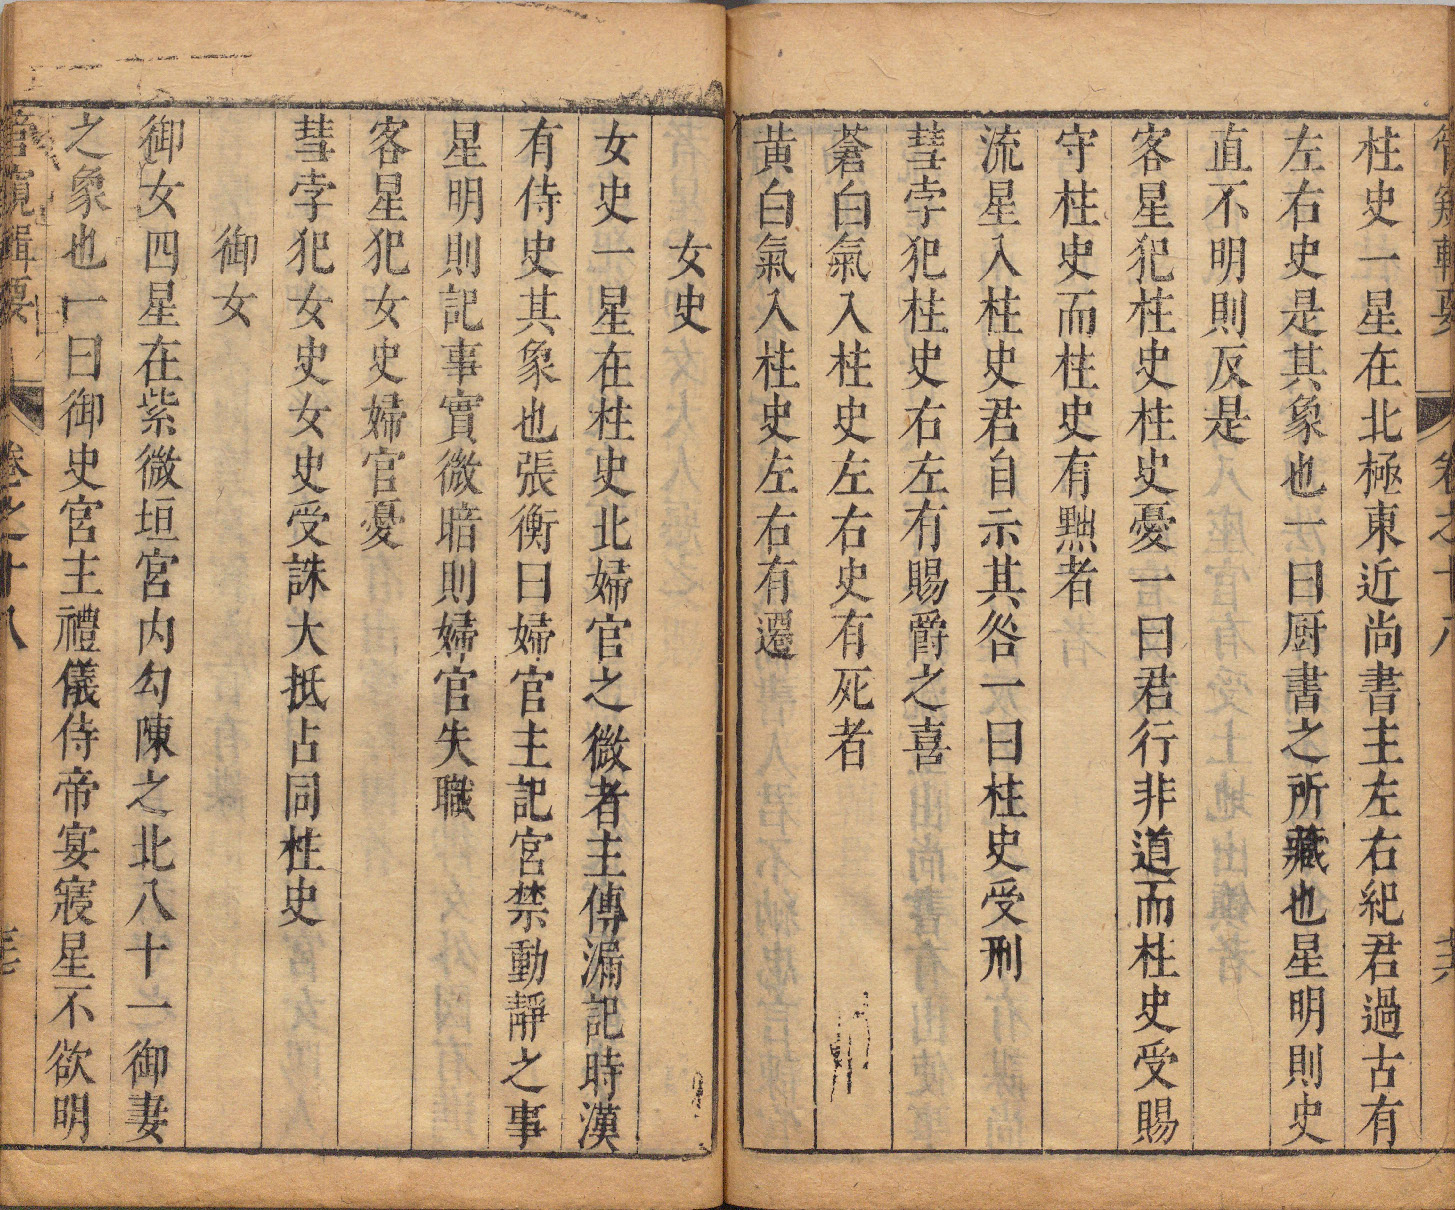 管窺輯要 卷之十八
柱史一星在北極東近尚書主左右紀君過古有
左右史是其象也一曰厨書之所藏也星明則史
直不明則反是
客星犯柱史柱史憂一曰君行非道而柱史受賜
守柱史而柱史有黜者
流星入柱史君自示其咎一曰柱史受刑
彗孛犯柱史右左有賜爵之喜
蒼白氣入柱史左右史有死者
黃白氣入柱史左右有遷
女史
女史一星在柱史北婦官之微者主傳漏記時漢
有侍史其象也張衡曰婦官主記宮禁動靜之事
星明則記事實微暗則婦官失職
客星犯女史婦官憂
彗孛犯女史女史受誅大抵占同柱史
御女
御女四星在紫微垣宮內勾陳之北八十一御妻
之象也一曰御史宮主禮儀侍帝宴寢星不欲明
管窺輯要 卷之十八